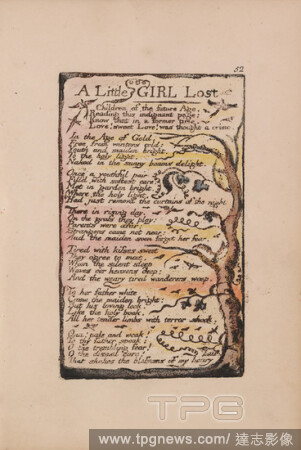 52
A Little GIRL Lost
Children of the future Age,
Reading this indignant page:
Know that in a former time,
Love! sweet Love! was thought a crime.
In the Age of Gold,
Free from winters cold:
Youth and maiden bright,
To the holy light,
Naked in the sunny beams delight.
Once a youthful pair
Fill'd with softest care:
Met in garden bright,
Where the holy light,
Had just removd the curtains of the night.
There in rising day,
On the grass they play:
Parents were afar:
Strangers came not near:
And the maiden soon forgot her fear.
Tired with kisses sweet
They agree to meet,
When the silent sleep
Waves o'er heavens deep:
And the weary tired wanderers weep.
To her father white
Came the maiden bright:
But his loving look,
Like the holy book,
All her tender limbs with terror shook.
Ona! pale and weak!
To thy father speak:
O the trembling fear!
O the dismal care!
That shakes the blossoms of my hoary
hair
TPG
www.tpgnews.com | 達志影像